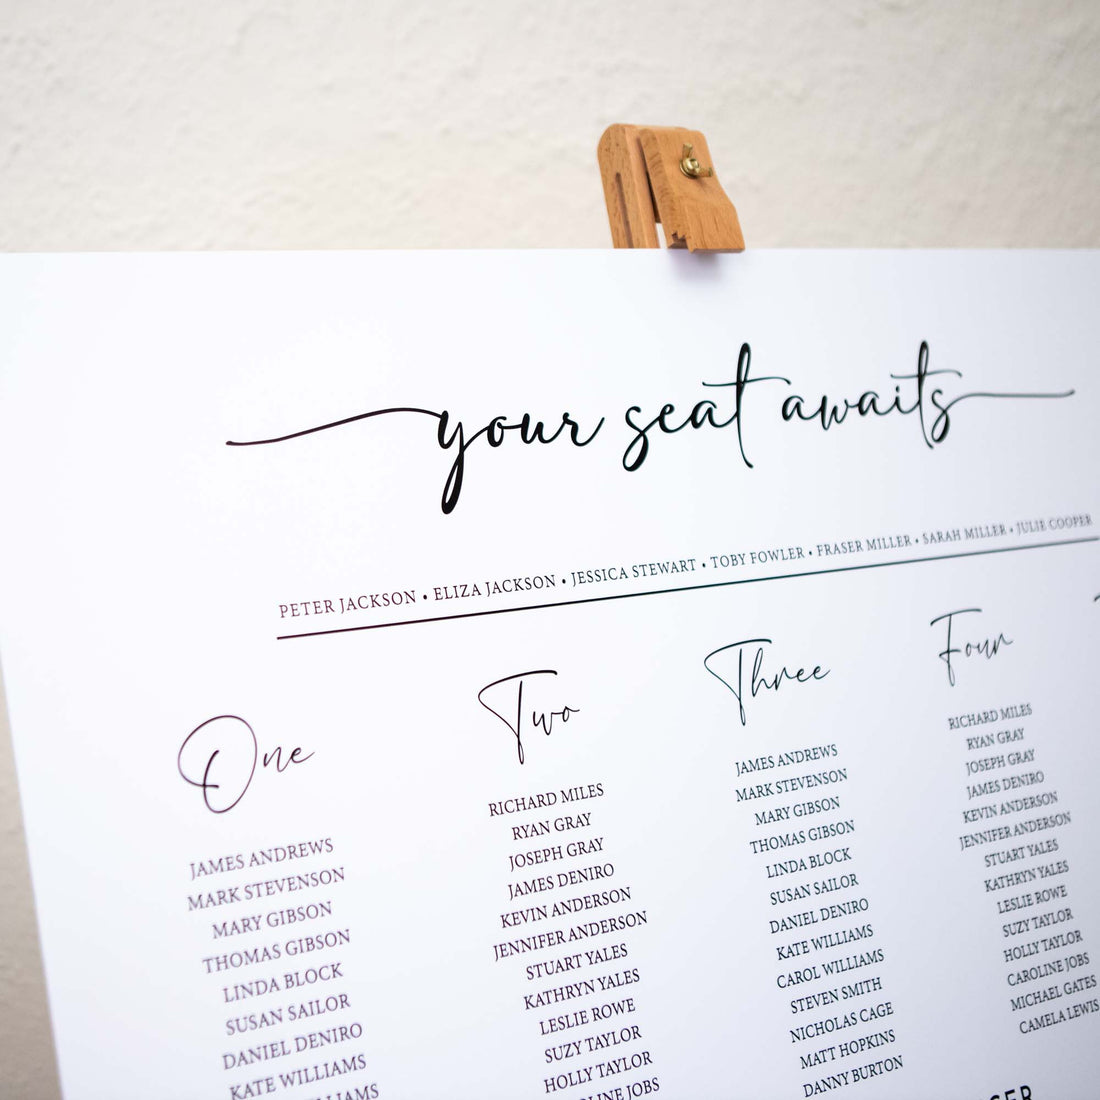 your seat awaits
PETER JACKSON • ELIZA JACKSON • JESSICA STEWART • TOBY FOWLER • FRASER MILLER • SARAH MILLER • JULIE COOPER
One
JAMES ANDREWS
MARK STEVENSON
MARY GIBSON
THOMAS GIBSON
LINDA BLOCK
SUSAN SAILOR
DANIEL DENIRO
KATE WILLIAMS
Two
RICHARD MILES
RYAN GRAY
JOSEPH GRAY
JAMES DENIRO
KEVIN ANDERSON
JENNIFER ANDERSON
STUART YALES
KATHRYN YALES
LESLIE ROWE
SUZY TAYLOR
HOLLY TAYLOR
JOBS
Three
JAMES ANDREWS
MARK STEVENSON
MARY GIBSON
THOMAS GIBSON
LINDA BLOCK
SUSAN SAILOR
DANIEL DENIRO
KATE WILLIAMS
CAROL WILLIAMS
STEVEN SMITH
NICHOLAS CAGE
MATT HOPKINS
DANNY BURTON
Four
RICHARD MILES
RYAN GRAY
JOSEPH GRAY
JAMES DENIRO
KEVIN ANDERSON
JENNIFER ANDERSON
STUART YALES
KATHRYN YALES
LESLIE ROWE
SUZY TAYLOR
HOLLY TAYLOR
CAROLINE JOBS
MICHAEL GATES
CAMELA LEWIS